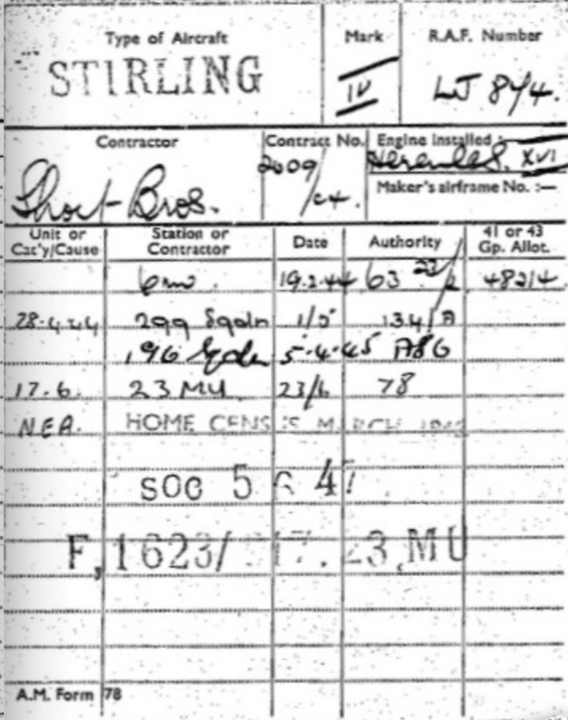 Type of Aircraft Mark R.A.F. Number
STIRLING IV LJ 844.
Contractor Contract No. Engine installed :—
Short Bros. 2009/C4. Hercules. XVI
Maker's airframe No. :—
Unit or Cat'y/Cause Station or Contractor Date Authority 41 or 43 Gp. Allot.
6 mu. 19.2.44 63 48214
28.4.44 299 Sqdn 1/5 1341A
196 Sqdn 5.4.45 A86
17.6. 23 MU. 23/6 78
NEA. HOME CENSUS MARCH
SOC 5 6 47
F,1623/ 23,MU
A.M. Form 78